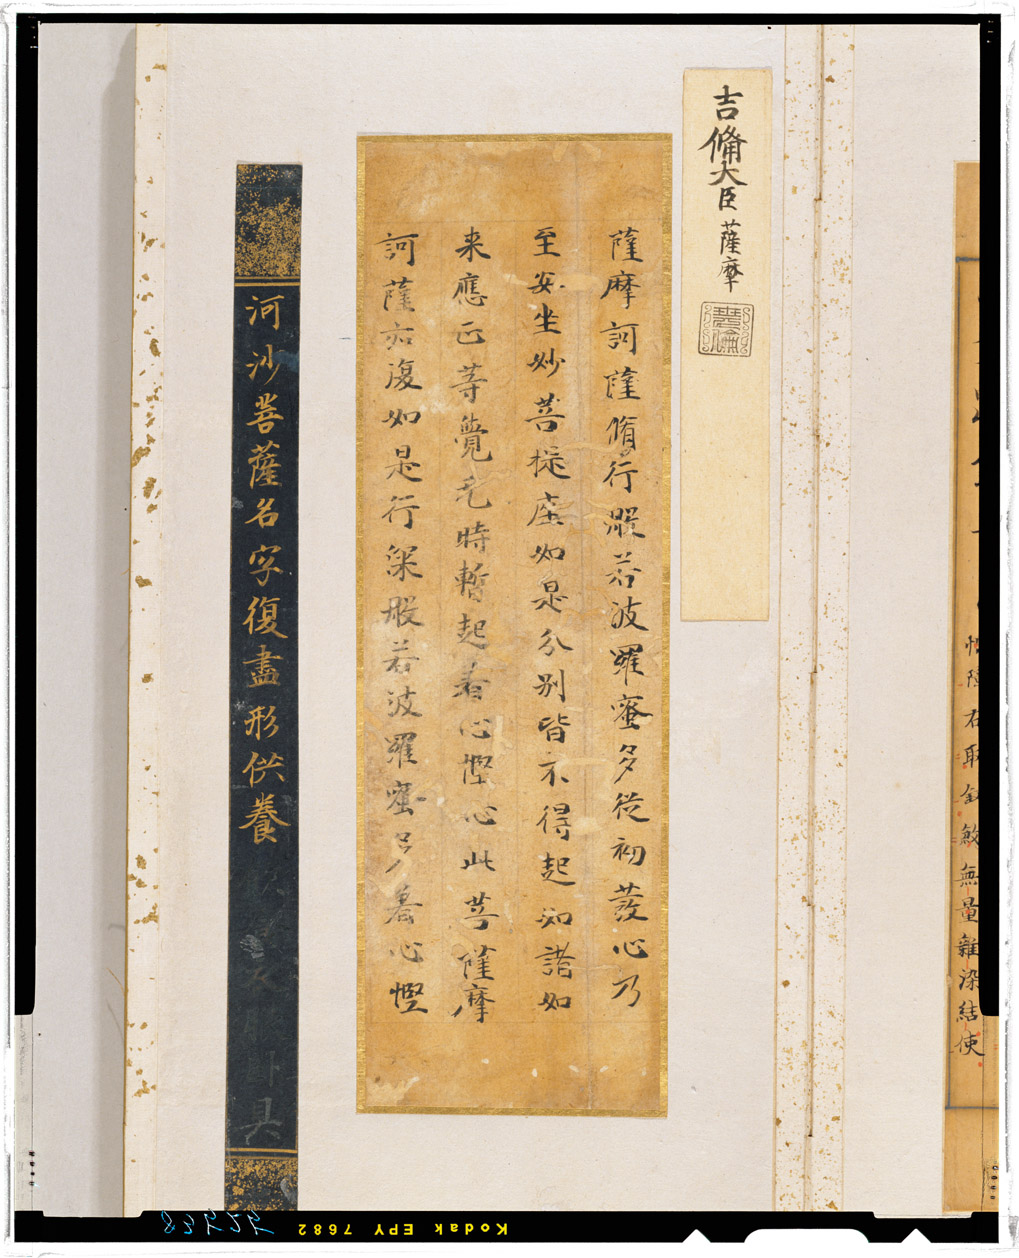 無量雜染結使
吉備大臣 薩摩
薩摩訶薩脩行般若波羅蜜多從初發心乃
至安坐妙菩提座如是分別皆不得起如諸如
来應正等覺无時暫起著心慳心此菩薩摩
訶薩亦復如是行深般若波羅蜜多著心慳
河沙菩薩名字復盡形供養飲食衣服臥具
Kodak EPY 7682